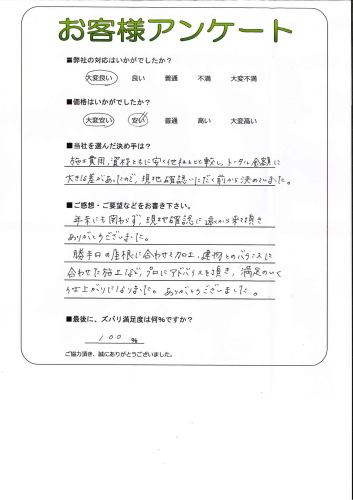 お客様アンケート
■弊社の対応はいかがでしたか?
大変良い 良い 普通 不満 大変不満
■価格はいかがでしたか?
大変安い 安い 普通 高い 大変高い
■当社を選んだ決め手は?
施工費用、資材ともに安く他社と比較し、トータル金額に
大きな差があったので、現地確認いただく前から決めていました。
■ご感想・ご要望などをお書き下さい。
年末にも関わらず、現地確認に遠くから来て頂き
ありがとうございました。
勝手口の屋根に合わせて加工、建物とのバランスに
合わせた施工など、プロにアドバイスを頂き、満足のいく
仕上がりになりました。ありがとうございました。
■最後に、ズバリ満足度は何%ですか?
100 %
ご協力頂き、誠にありがとうございました。